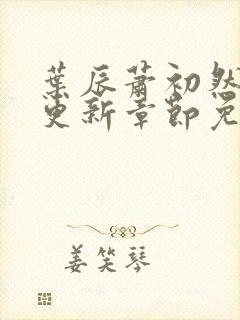 葉辰蕭初然
更新章節免
姜笑琴